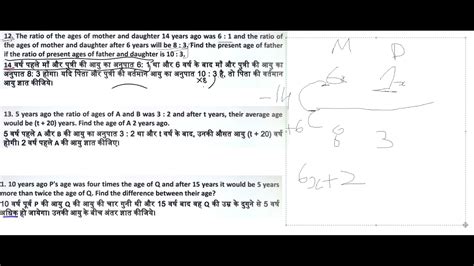 12. The ratio of the ages of mother and daughter 14 years ago was 6 : 1 and the ratio of
the ages of mother and daughter after 6 years will be 8 : 3. Find the present age of father
if the ratio of present ages of father and daughter is 10 : 3.
14 वर्ष पहले माँ और पुत्री की आयु का अनुपात 6: 1 था और 6 वर्ष के बाद माँ और पुत्री की आयु का
अनुपात 8: 3 होगा। यदि पिता और पुत्री की वर्तमान आयु का अनुपात 10 : 3 है, तो पिता की वर्तमान
आयु ज्ञात कीजिये।
x8
13. 5 years ago the ratio of ages of A and B was 3 : 2 and after t years, their average age
would be (t + 20) years. Find the age of A 2 years ago.
5 वर्ष पहले A और B की आयु का अनुपात 3 : 2 था और t वर्ष के बाद, उनकी औसत आयु (t + 20) वर्ष
होगी। 2 वर्ष पहले A की आयु ज्ञात कीजिए।
1. 10 years ago P's age was four times the age of Q and after 15 years it would be 5 years
more than twice the age of Q. Find the difference between their age?
10 वर्ष पूर्व P की आयु Q की आयु की चार गुनी थी और 15 वर्ष बाद वह Q की उम्र के दुगुने से 5 वर्ष
अधिक हो जायेगा। उनकी आयु के बीच अंतर ज्ञात कीजिये।
M D
-14
+6
8 3
6x+2